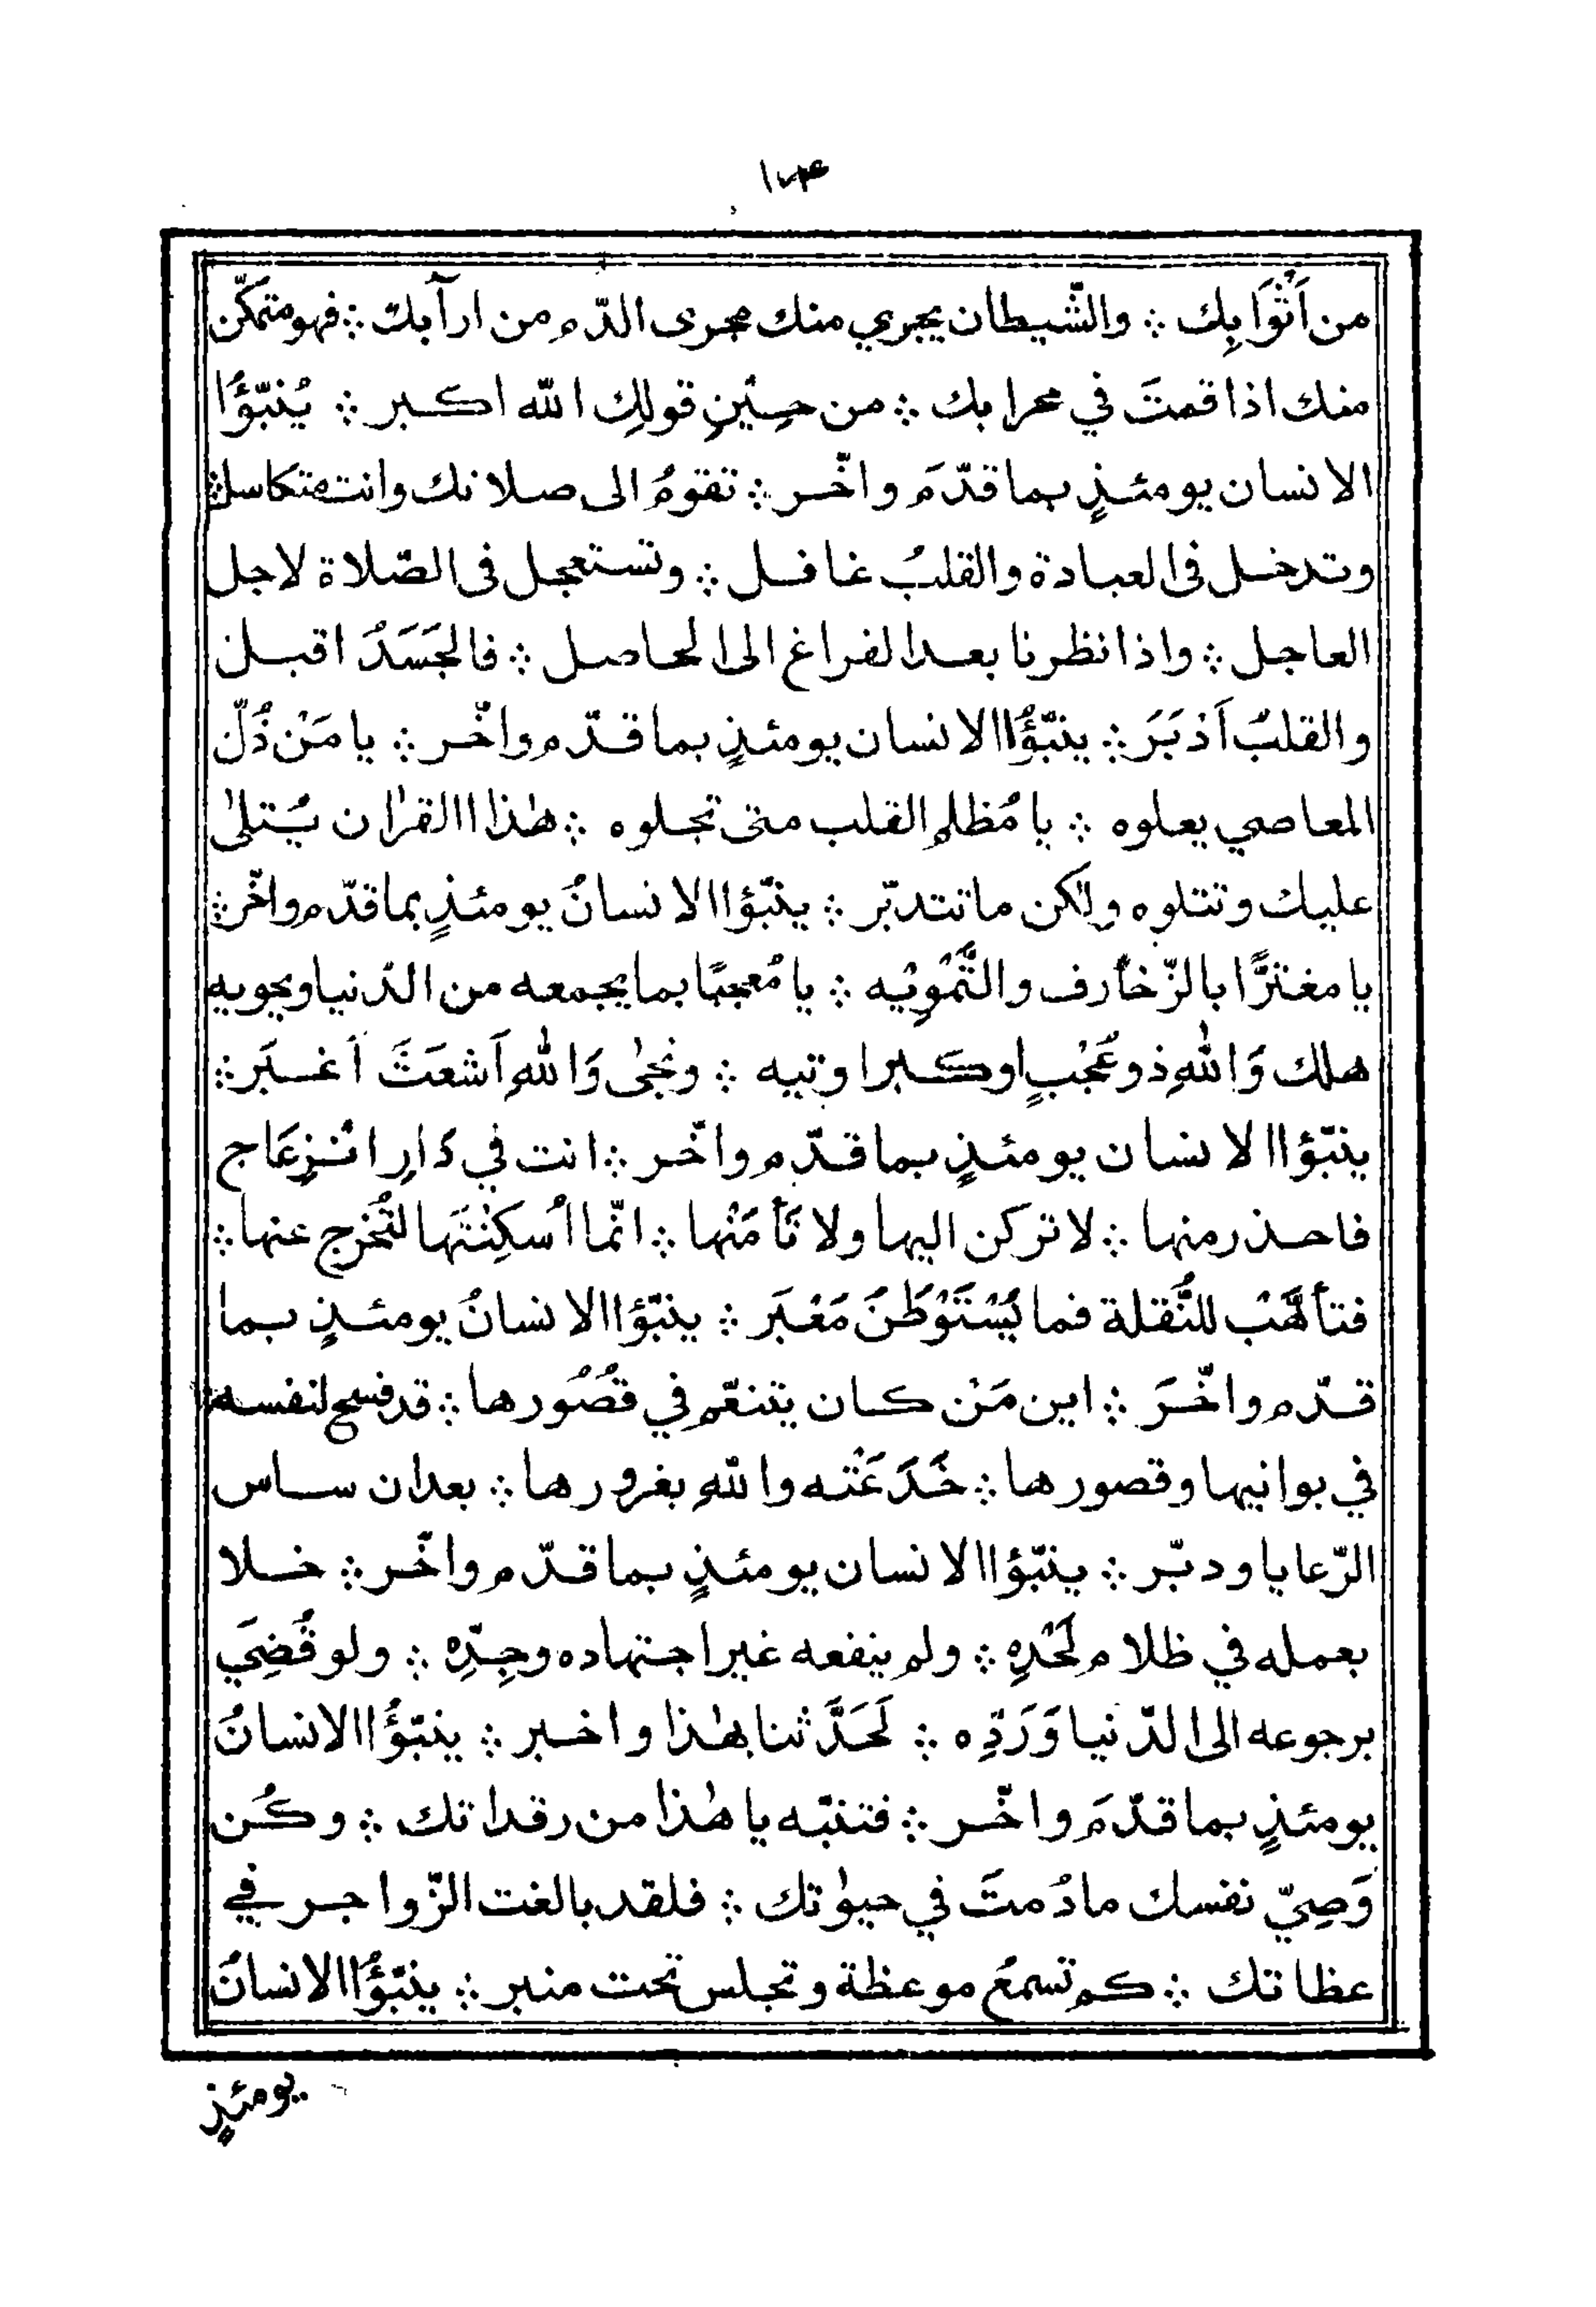 ١٧٤
من اَثْوَابِك ؞ والشّيطان يجري منك مجرى الدّم من ارآبك ؞ فهو متمكّن
منك اذا قمتَ في محرابك ؞ من حِيْنِ قولِك الله اكبر ؞ يُنَبّؤُا
الانسان يومئذٍ بما قدّمَ واخّر ؞ تقومُ الى صلاتك وانت متكاسل ؞
وتدخل فى العبادة والقلبُ غافل ؞ وتستعجل فى الصّلاة لاجل
العاجل ؞ واذا نظرنا بعد الفراغ الى الحاصل ؞ فالجَسَدُ اقبل
والقلبُ اَدْبَرَ ؞ ينبّؤُا الانسان يومئذٍ بما قدّم واخّر ؞ يا مَنْ ذُلّ
المعاصي يعلوه ؞ يا مُظلم القلب متى تجلوه ؞ هٰذا القرٰان يُتلىٰ
عليك وتتلوه ولٰكن ما تتدبّر ؞ ينبّؤا الانسانُ يومئذٍ بما قدّم واخّر ؞
يا مغترًّا بالزّخارف والتَّمْوِيْه ؞ يا مُعجبًا بما يجمعه من الدّنيا ويحويه
هلك وَاللهِ ذو عُجْبٍ او كبر او تيه ؞ ونجىٰ وَاللهِ اَشعَثَ اَغبَر ؞
ينبّؤا الانسان يومئذٍ بما قدّم واخّر ؞ انت في دَارِ انْزِعَاج
فاحذر منها ؞ لا تركن اليها ولا تَأمَنْها ؞ انّما اُسكِنْتَها لتُخرج عنها ؞
فتأهَّبْ للنُّقلة فما يُسْتَوْطَنُ مَعْبَر ؞ ينبّؤا الانسانُ يومئذٍ بما
قدّم واخّرَ ؞ اين مَنْ كان يتنعّم في قُصُورها ؞ قد فسح لنفسه ؞
في بوانيها وقصورها ؞ خَدَعَتْه واللهِ بغرورها ؞ بعد ان ساس
الرّعايا ودبّر ؞ ينبّؤا الانسان يومئذٍ بما قدّم واخّر ؞ خلا
بعمله في ظلام لَحْدِهِ ؞ ولم ينفعه غير اجتهاده وجِدِّهِ ؞ ولو قُضِيَ
برجوعه الى الدّنيا وَرَدِّه ؞ لَحَدَّثنا بهٰذا واخبر ؞ ينبّؤُا الانسانُ
يومئذٍ بما قدّمَ واخّر ؞ فتنبّه يا هٰذا من رقداتك ؞ وكُن
وَصِيّ نفسك ما دُمتَ في حيٰوتك ؞ فلقد بالغت الزّواجر في
عظاتك ؞ كم تسمعُ موعظة وتجلس تحت منبر ؞ ينبّؤُا الانسانُ
يومئذٍ